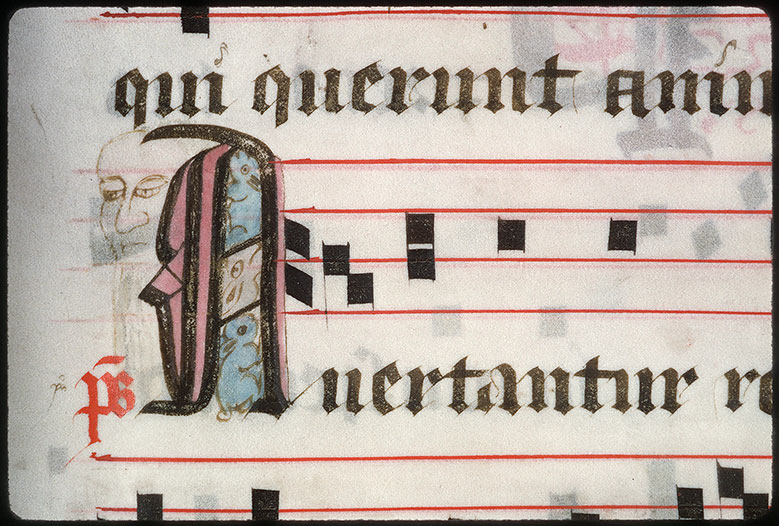 qui querunt anim
ps Auertantur re